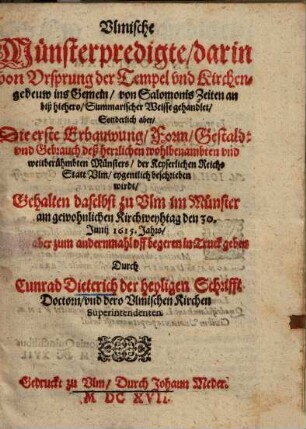 Vlmische
Münsterpredigte/darin
von Vrsprung der Tempel vnd Kirchen-
gebeuw ins Gemein/ von Salomonis Zeiten an
biß hiehero/Summarischer Weise gehandlet/
Sonderlich aber/
Die erste Erbauwung/Form/Gestald:
vnd Gebrauch deß herrlichen wohlbenambten vnd
weitberühmbten Münsters/ der Keyserlichen Reichs
Statt Vlm/ eygentlich beschrieben
wirdt/
Gehalten daselbst zu Vlm im Münster
am gewohnlichen Kirchweyhtag den 30.
Junij 1615. Jahrs/
aber zum andernmahl vff begeren in Truck geben
Durch
Cunrad Dieterich der heyligen Schrifft
Doctorn/vnd dero Vlmischen Kirchen
Superintendenten.
Gedruckt zu Vlm/ Durch Johann Meder.
M DC XVII.